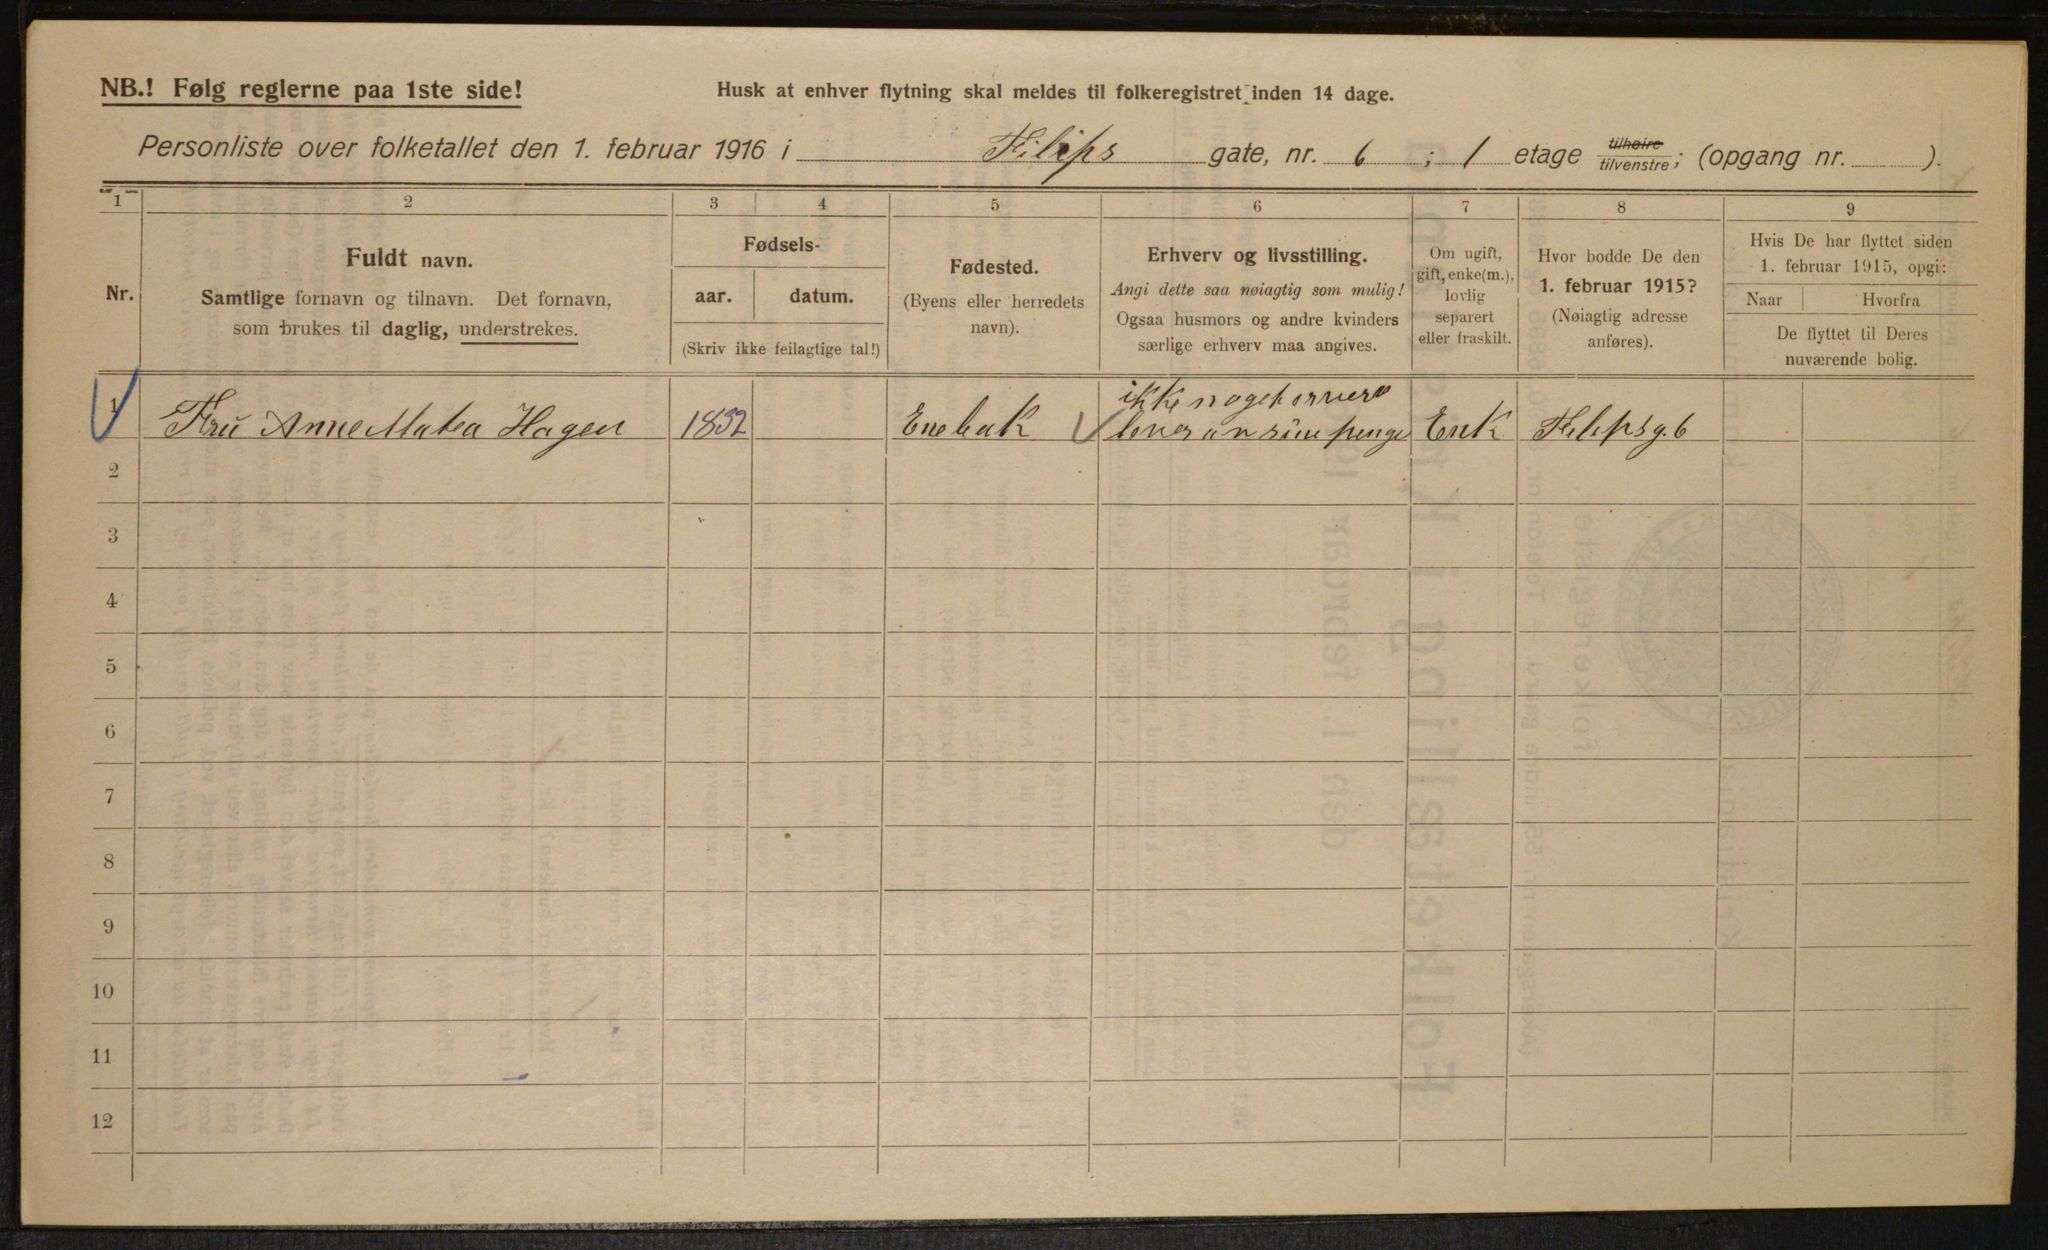 NB.! Følg reglerne paa 1ste side!
Husk at enhver flytning skal meldes til folkeregistret inden 14 dage.
Personliste over folketallet den 1. februar 1916 i Filips gate, nr. 6 ; 1 etage tilhøire tilvenstre; (opgang nr. ).
1 2 3 4 5 6 7 8 9
Nr.
Fuldt navn.
Samtlige fornavn og tilnavn. Det fornavn,
som brukes til daglig, understrekes.
Fødsels-
aar. datum.
(Skriv ikke feilagtige tal!)
Fødested.
(Byens eller herredets
navn).
Erhverv og livsstilling.
Angi dette saa nøiagtig som mulig!
Ogsaa husmors og andre kvinders
særlige erhverv maa angives.
Om ugift,
gift, enke(m.),
lovlig
separert
eller fraskilt.
Hvor bodde De den
1. februar 1915?
(Nøiagtig adresse
anføres).
Hvis De har flyttet siden
1. februar 1915, opgi:
Naar Hvorfra
De flyttet til Deres
nuværende bolig.
ikke noget
1 Fru Anne Matea Hagen 1832 Enebak sine penge Enk Filipsg. 6
2
3
4
5
6
7
8
9
10
11
12